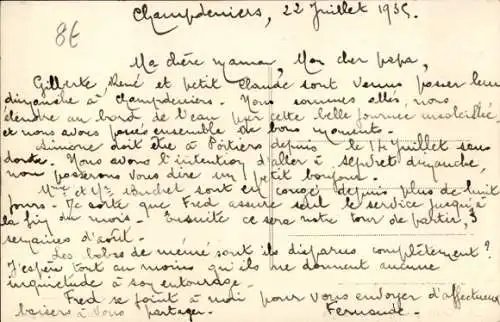 8€
Champdeniers, 22 Juillet 1935.
Ma chère maman, Mon cher papa,
Gilberte René et petit Claude sont venus passer leur
dimanche à Champdeniers. Nous sommes allés, nous
étendre au bord de l'eau par cette belle journée ensoleillée
et nous avons passé ensemble de bons moments.
Simone doit être à Poitiers depuis le 14 Juillet sans
doute. Nous avons l'intention d'aller à Sepvret dimanche,
nous passerons vous dire un petit bonjour.
Mr et Mme Buchet sont en congé depuis plus de huit
jours. De sorte que Fred assure seul le service jusqu'à
la fin du mois. Ensuite ce sera notre tour de partir, 3
semaines d'août.
Les bobos de mémé sont ils disparus complètement?
J'espère tout au moins qu'ils ne donnent aucune
inquiétude à son entourage.
Fred se joint à moi pour vous envoyer d'affectueux
baisers à vous partager.
Fernande.